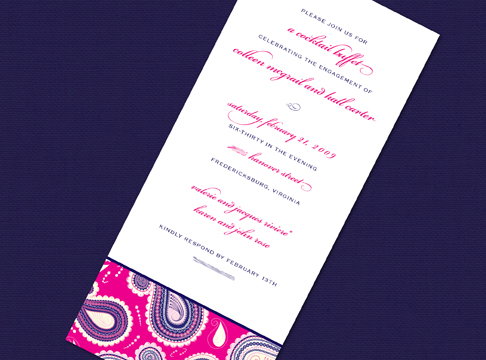 PLEASE JOIN US FOR
a cocktail buffet
CELEBRATING THE ENGAGEMENT OF
colleen mcgrail and hall carter
saturday february 21, 2009
SIX-THIRTY IN THE EVENING
hanover street
FREDERICKSBURG, VIRGINIA
valerie and jacques riviere
karen and john rose
KINDLY RESPOND BY FEBRUARY 13TH